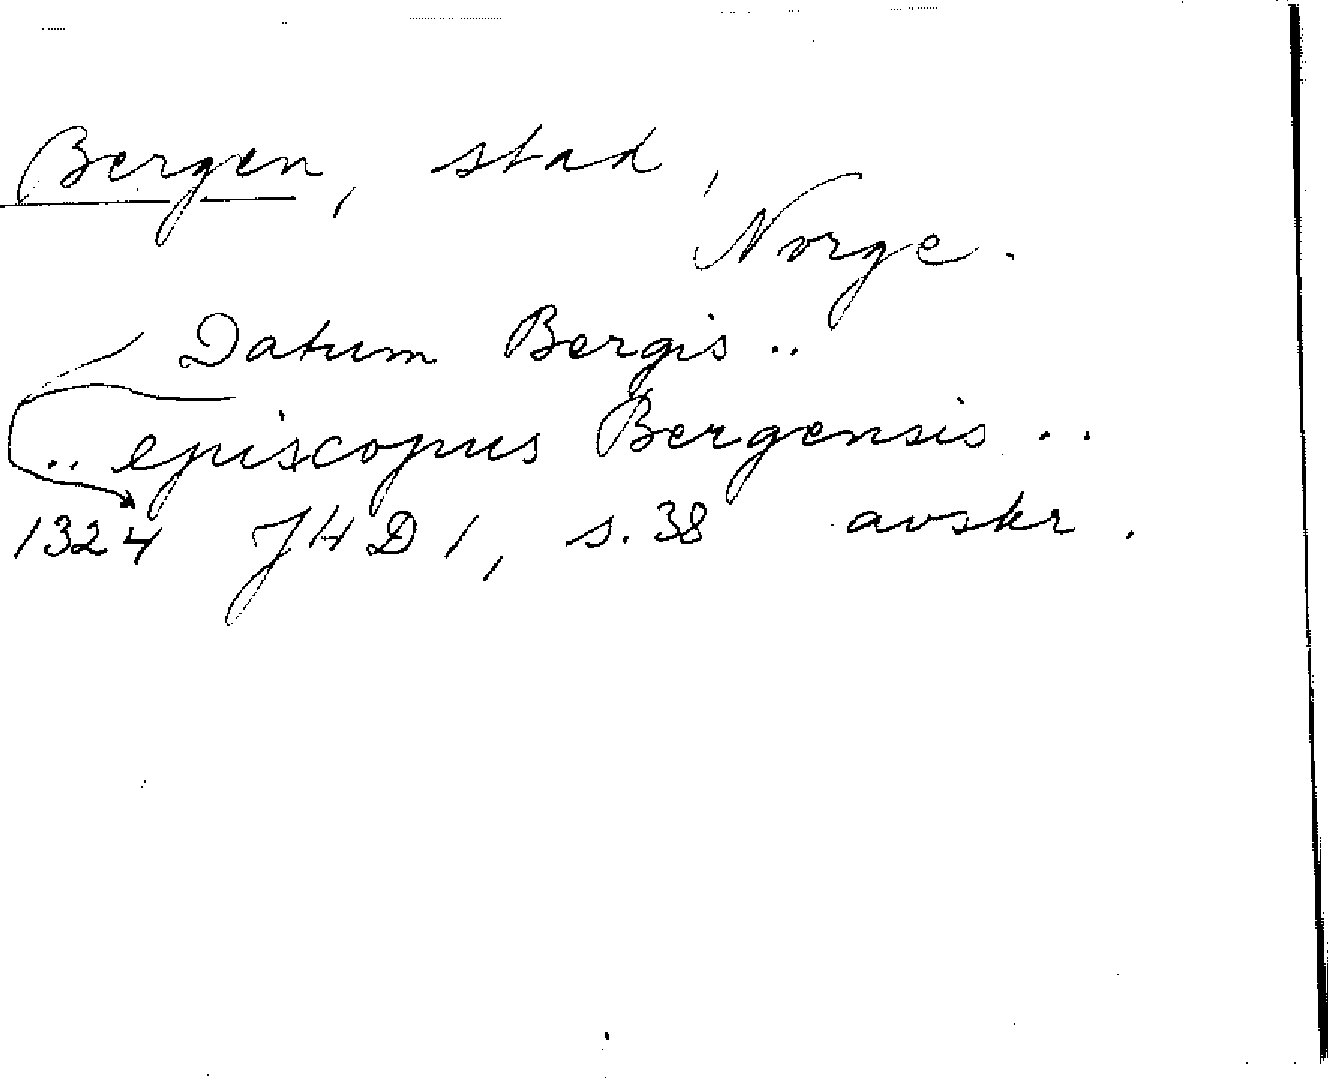 Bergen, stad,
Norge.
Datum Bergis..
.. episcopus Bergensis ..
1324 JHD 1, s. 38 avskr.